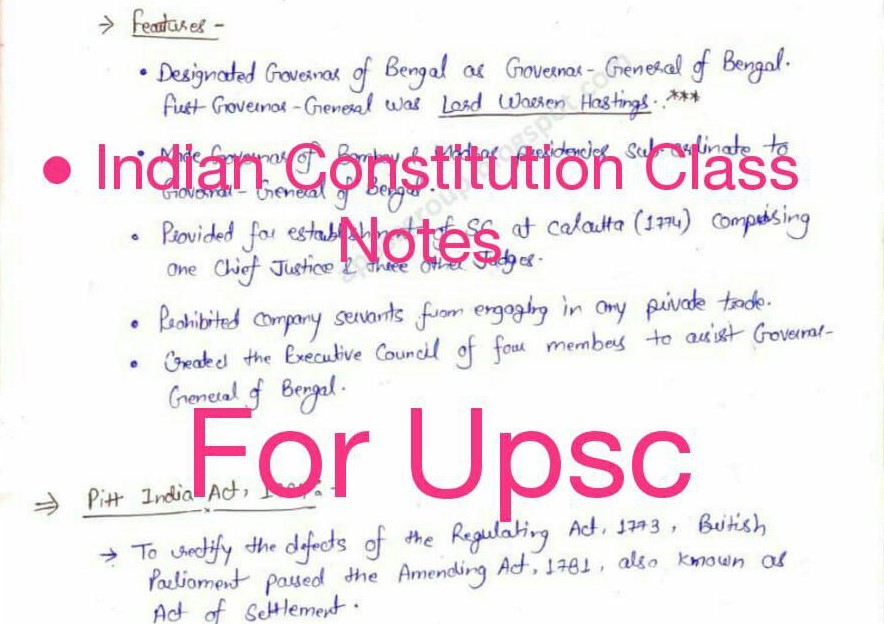 → Features -
• Designated Governor of Bengal as Governor-General of Bengal.
First Governor-General was Lord Warren Hastings. ***
• Made Governor of Bombay & Madras Presidencies sub-ordinate to
Governor-General of Bengal.
• Indian Constitution Class
Notes
• Provided for establishment of SC at Calcutta (1774) comprising
one Chief Justice & three other Judges.
• Prohibited company servants from engaging in any private trade.
• Created the Executive Council of four members to assist Governor-
General of Bengal.
For Upsc
⇒ Pitt India Act,
→ To rectify the defects of the Regulating Act, 1773, British
Parliament passed the Amending Act, 1781, also known as
Act of Settlement.